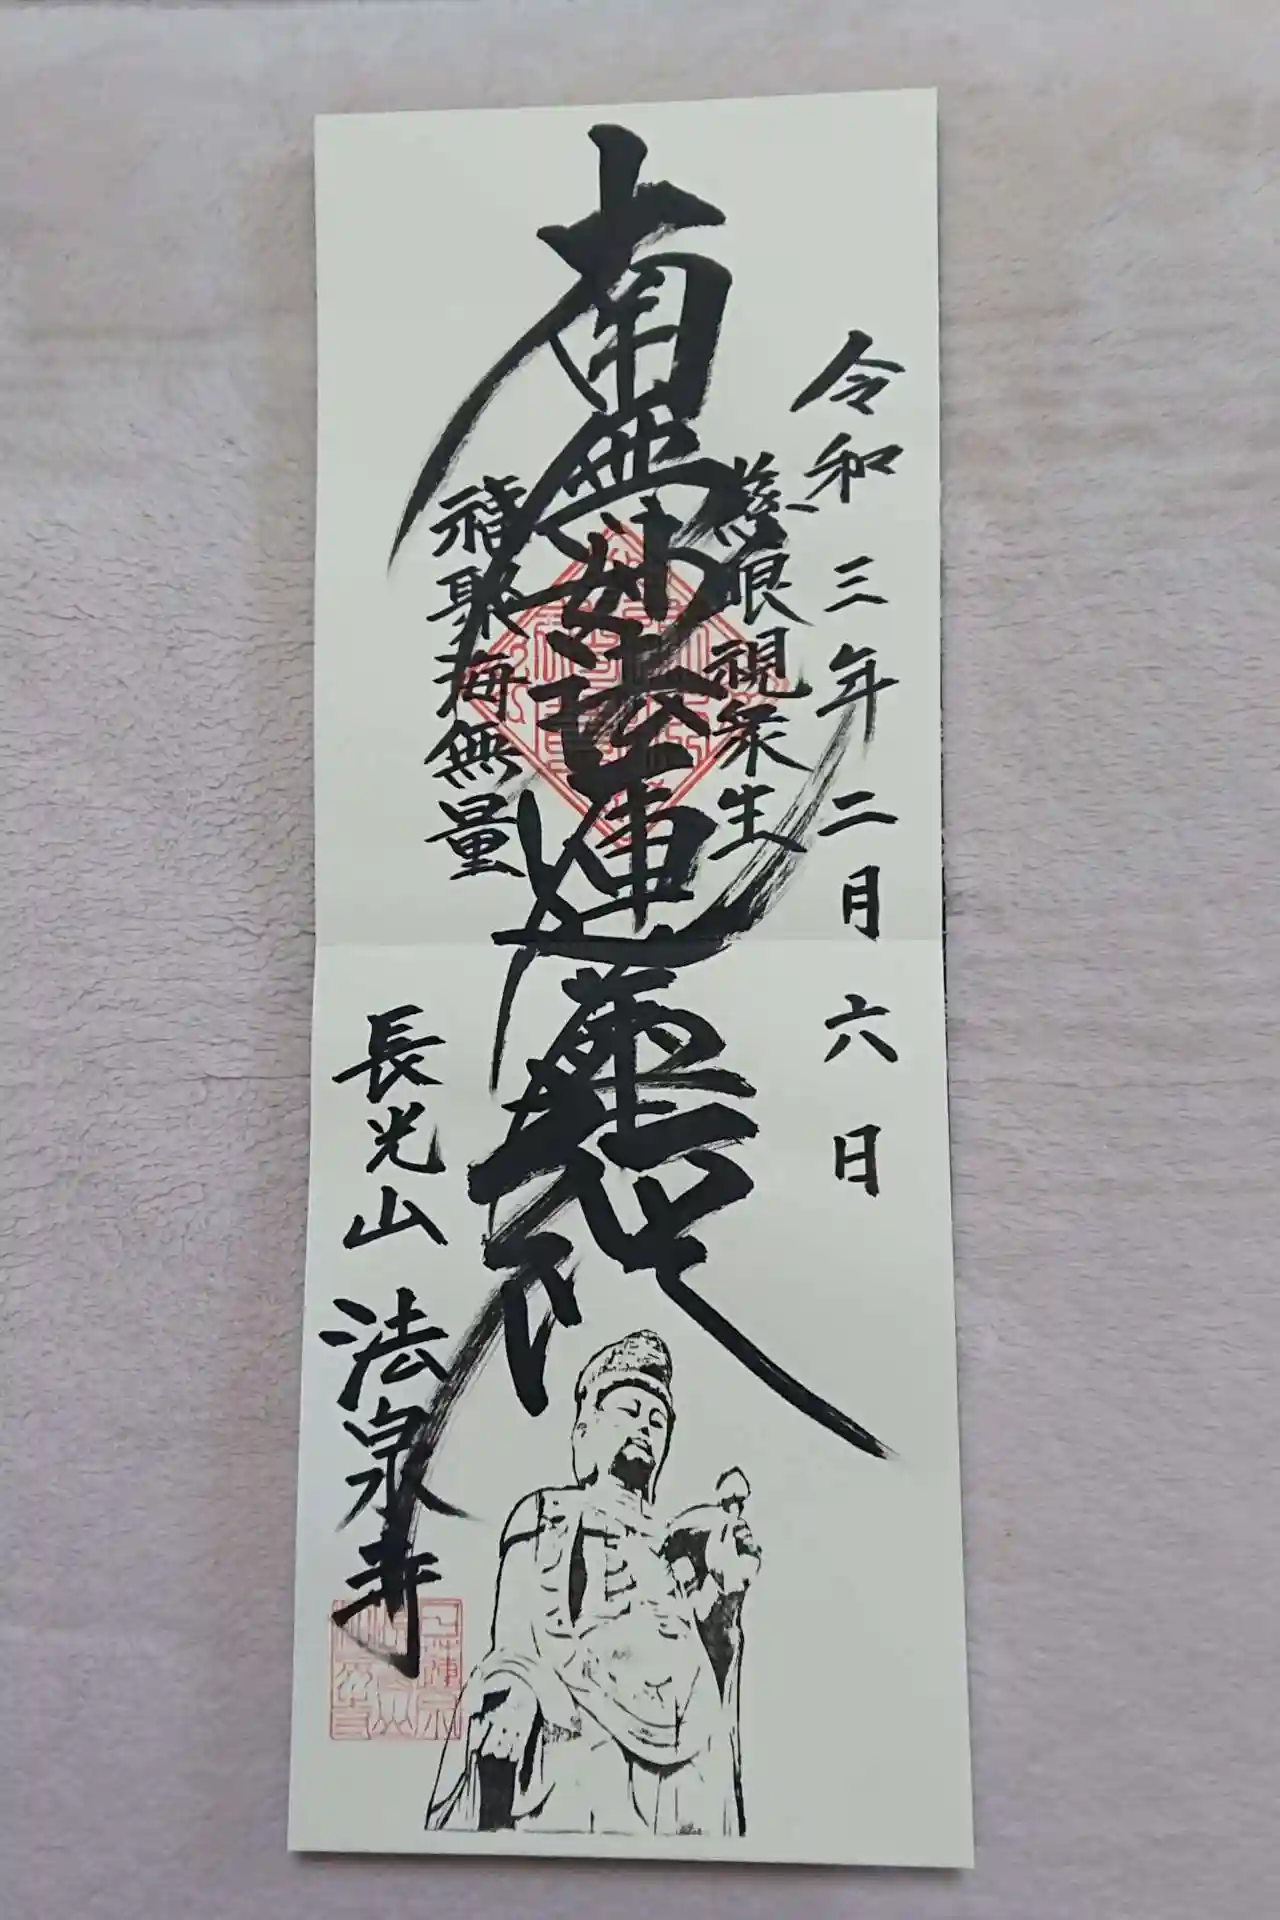 令和三年二月六日
慈眼視衆生
南無妙法蓮華経
福聚海無量
長光山 法泉寺